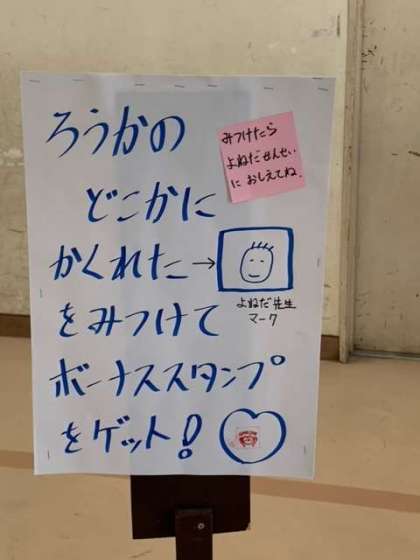 ろうかの
どこかに
かくれた→
をみつけて
ボーナススタンプ
をゲット!
みつけたら
よねだせんせい
に おしえてね。
よねだ先生
マーク